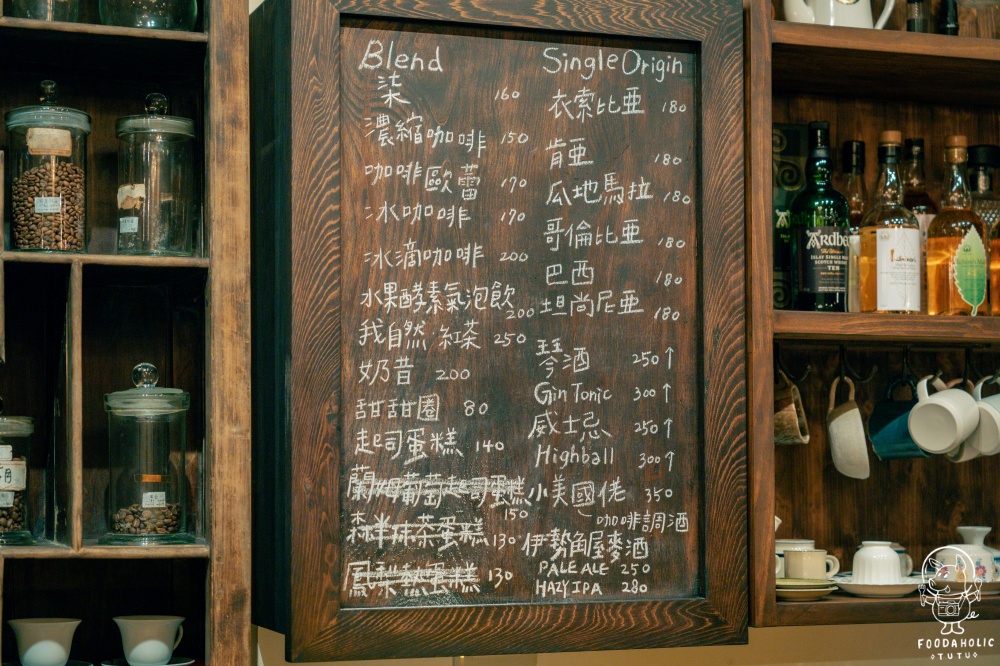 Blend
柒 160
濃縮咖啡 150
咖啡歐蕾 170
冰咖啡 170
冰滴咖啡 200
水果酵素氣泡飲 200
我自然 紅茶 250
奶昔 200
甜甜圈 80
起司蛋糕 140
蘭姆葡萄起司蛋糕 150
森半抹茶蛋糕 130
鳳梨熱蛋糕 130
Single Origin
衣索比亞 180
肯亞 180
瓜地馬拉 180
哥倫比亞 180
巴西 180
坦尚尼亞 180
琴酒 250↑
Gin Tonic 300↑
威士忌 250↑
Highball 300↑
小美國佬 350
咖啡調酒
伊勢角屋麥酒
PALE ALE 250
HAZY IPA 280
Ardbeg
ISLAY SINGLE MALT
SCOTCH WHISKY
TEN
FOODAHOLIC
TUTU